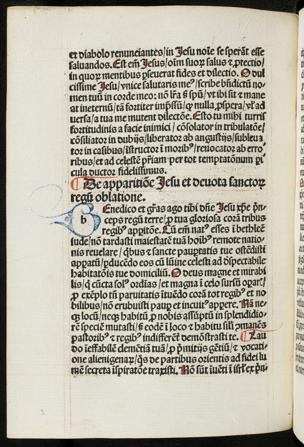 et diabolo renunciantes/in Jesu noĩe se sperãt esse
saluandos. Est em̃ Jesus/oĩm suoꝝ salus ⁊ ꝓtectio/
in quoꝝ mentibus ꝑseuerat fides et dilectio. O dul
cissime Jesu/vnice salutaris me⁹/scribe bñdictũ no
men tuũ in corde meo: nõ lr̃a s̃ spũ/vt ibi sit ⁊ mane
at ineternũ/tã fortiter imp̃ssũ/ꝙ nulla ꝓspera/vl̃ ad
uersa/a tua me mutent dilectõe. Esto tu mihi turris
fortitudinis a facie inimici/cõsolator in tribulatõe/
cõsiliator in dubijs/liberator ab angustijs/subleua
tor in casibus/istructor ĩ morib⁹/reuocator ab erro
ribus/et ad celestẽ pr̃iam per tot temptationum pi
cula ductor fidelissimus.
De apparitiõe Jesu et deuota sanctoꝝ
regũ oblatione.
b Enedico et gr̃as ago tibi dñe Jesu xp̃e pñ
ceps regũ terre/ꝓ tua gloriosa corã tribus
regib⁹ apptõe. Cũ em̃ nat⁹ esses ĩ bethleẽ
iude/nõ tardasti maiestatẽ tuã hoĩb⁹ remote natio
nis reuelare/ꝗbus ⁊ sancte pauptatis tue ostẽdisti
apparatũ/ducẽdo eos cũ lũine celesti ad dspectabile
habitatõis tue domiciliũ. O deus magne et mirabi
lis/ꝗ cũcta sol⁹ ordias/et magna ĩ celo seruis ⁊ terra/
ꝓ exẽplo tñ paruitatis iuuẽdo corã tot regib⁹ et no
bilibus/nõ erubuisti pauꝑ et inuolut⁹ apere. Nã ne
ꝗ locũ/necꝗ habitũ ꝓ nobis assũptũ in splendidio
rẽ speciẽ mutasti/s̃ eodẽ ĩ loco ⁊ habitu sil̃i ꝑmanẽs
pastorib⁹ ⁊ regib⁹ indifferẽt demõstrasti te. Lau
do ineffabilẽ clemẽtiã tuã/ꝓ p̃mitijs gẽtiũ/⁊ vocati
one alienigenaꝝ/ꝗs de partibus orientis ad fidei lu
mẽ secreta ispiratõe traxisti. Nõ sũt iuẽti ĩ isrl̃ ex pñ